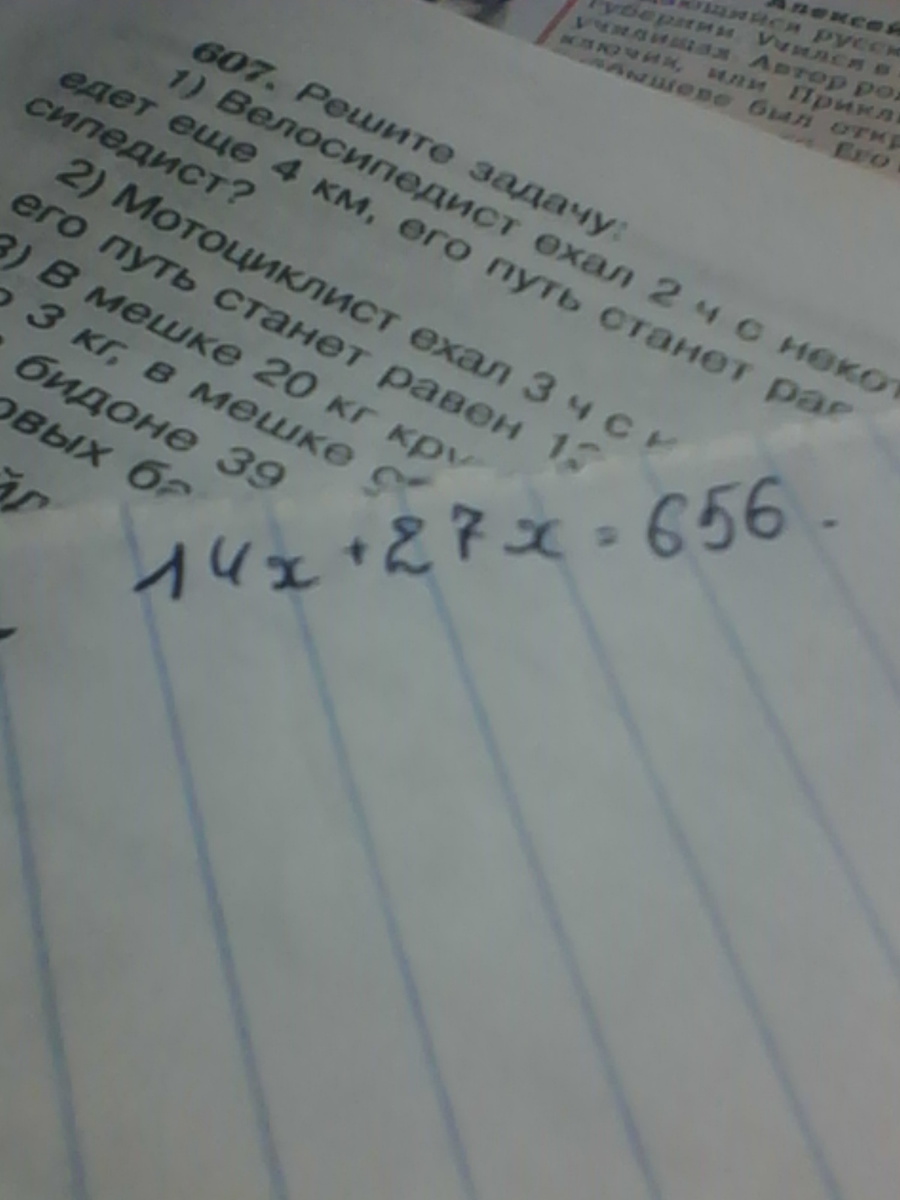 Алексей
русси
губернии Учился в
училищах Автор ро
ключик, или Прикл
был откр
Его
607. Решите задачу:
1) Велосипедист ехал 2 ч с некот
едет еще 4 км, его путь станет рав
сипедист?
2) Мотоциклист ехал 3 ч с
его путь станет равен
3) В мешке 20 кг кру
3 кг, в мешке
бидоне 39
овых
14x + 27x = 656.